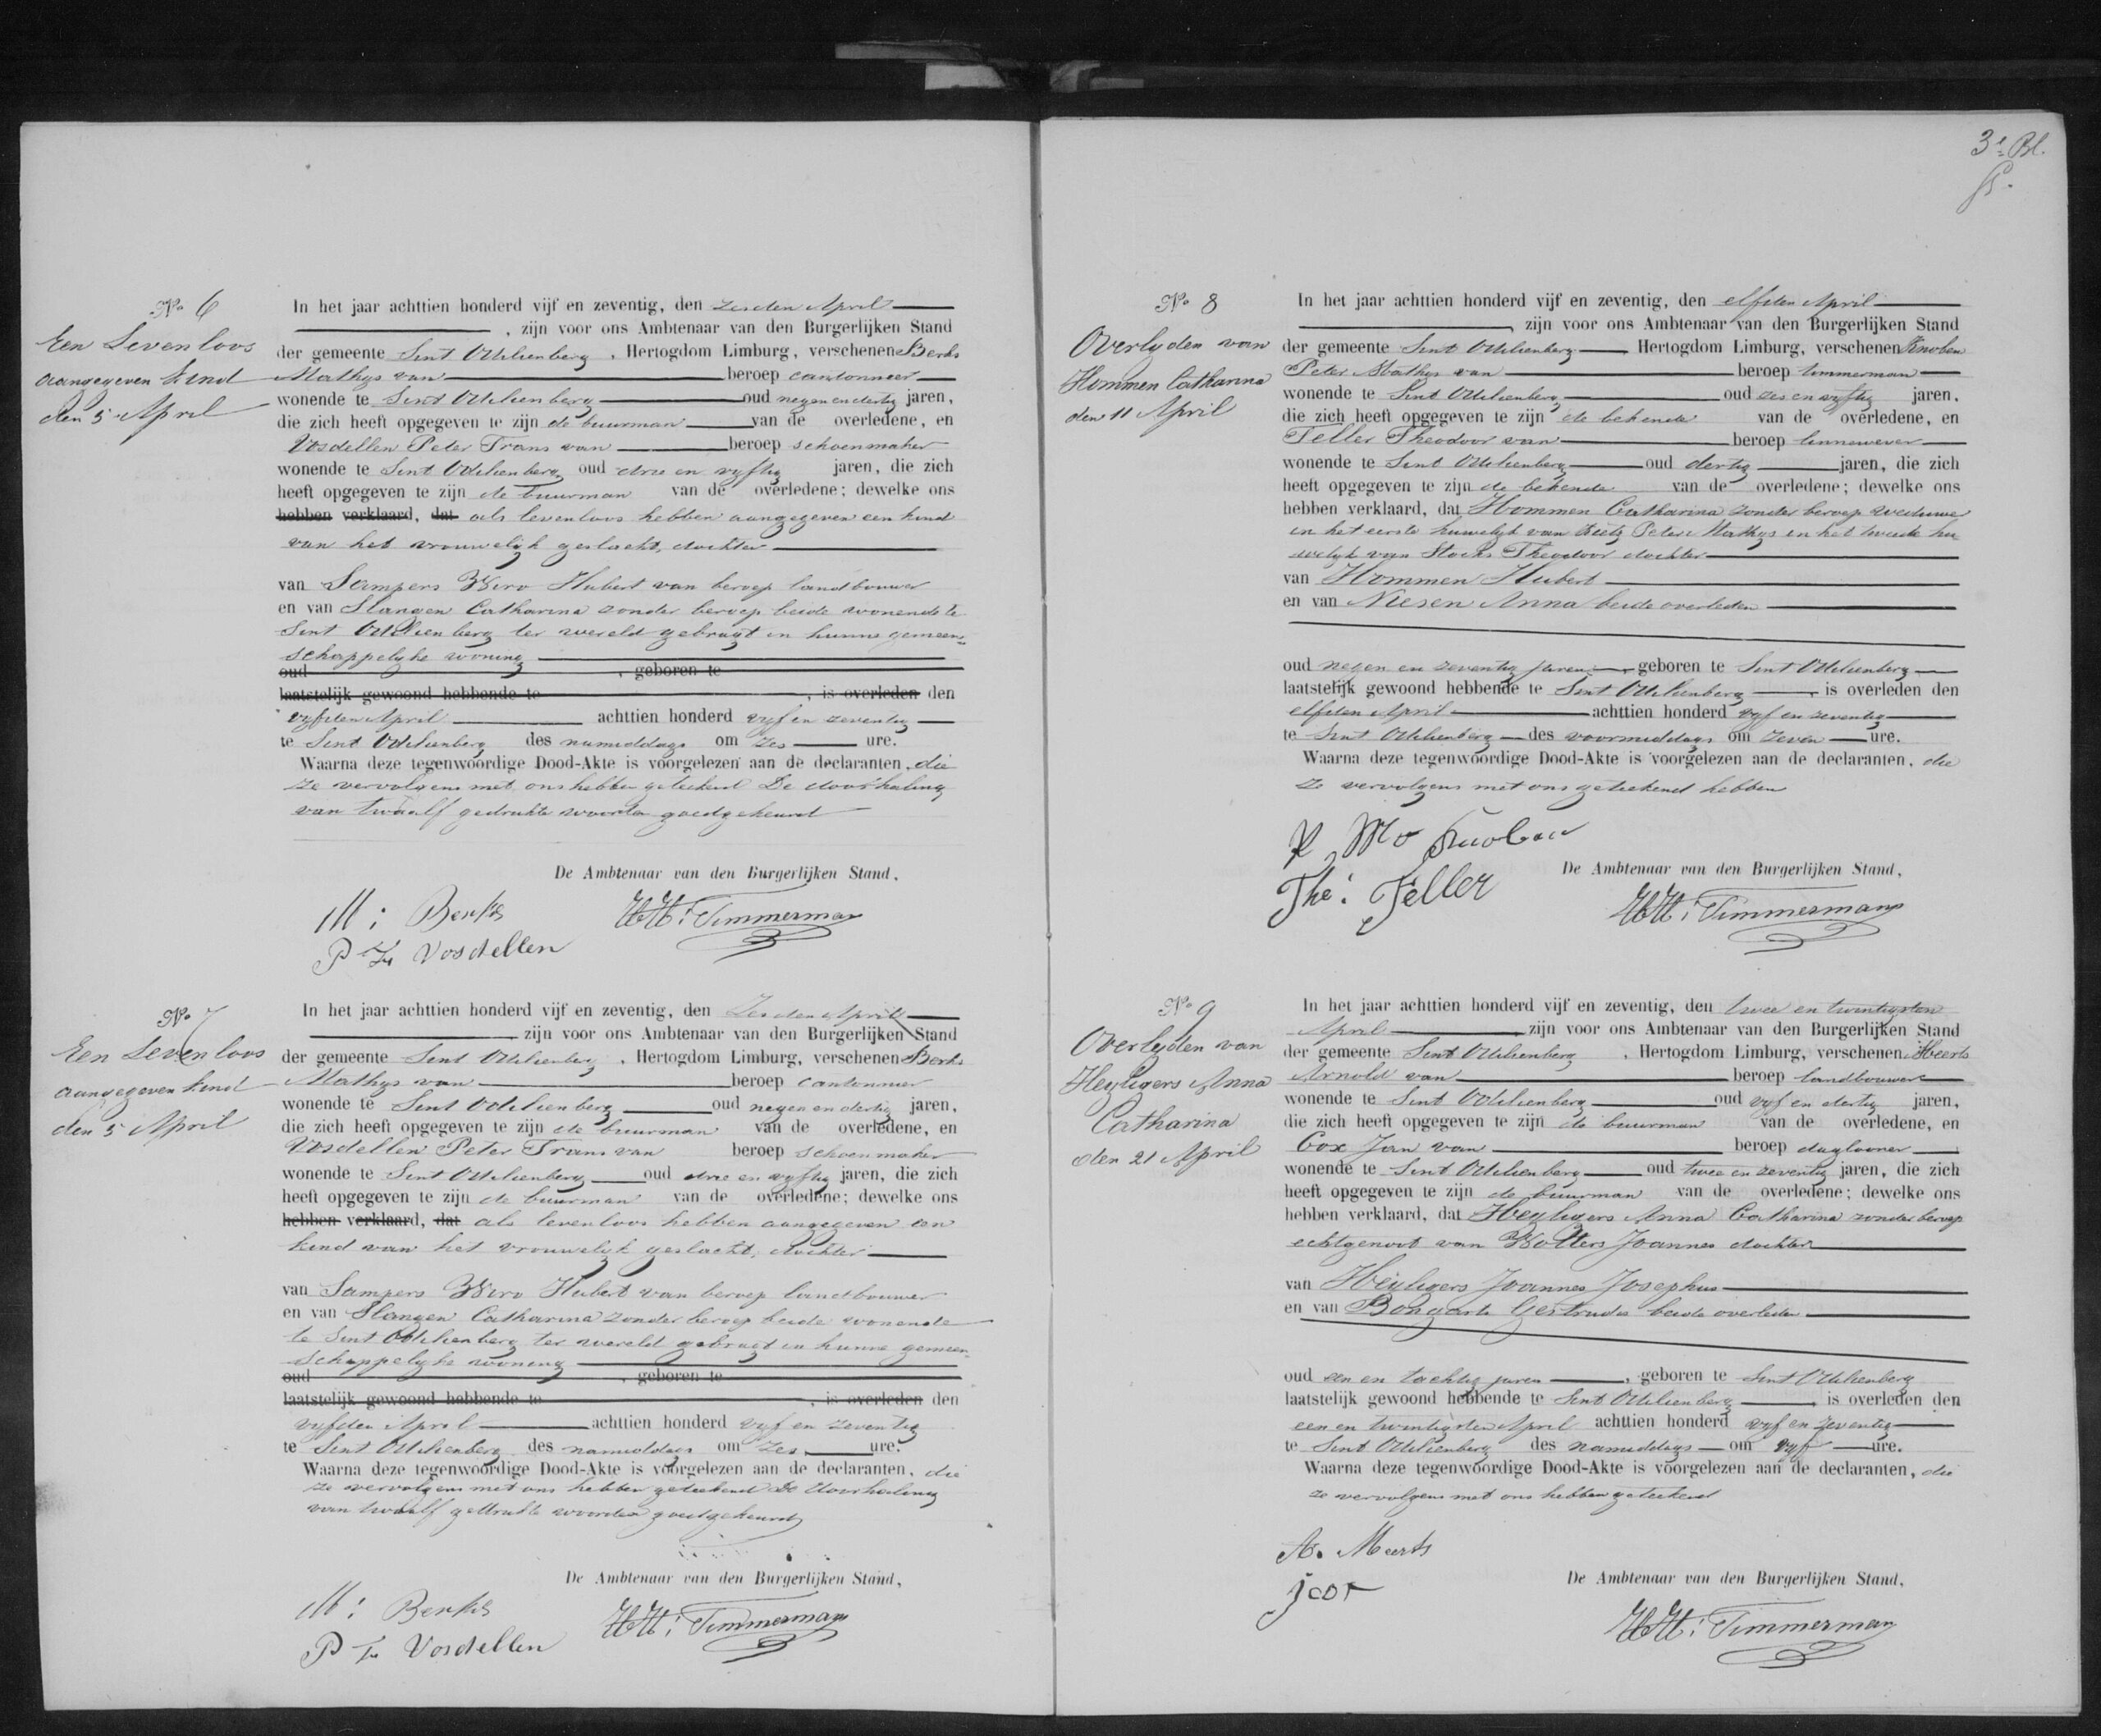 No 6
Een Levenloos
aangegeven kind
den 5 April
In het jaar achttien honderd vijf en zeventig, den zesden April
, zijn voor ons Ambtenaar van den Burgerlijken Stand
der gemeente Sint Odilienberg, Hertogdom Limburg, verschenen Berks
Mathys van beroep cantonneer
wonende te Sint Odilienberg oud negen en dertig jaren,
die zich heeft opgegeven te zijn de buurman van de overledene, en
Vosdellen Peter Frans van beroep schoenmaker
wonende te Sint Odilienberg oud drie en vyftig jaren, die zich
heeft opgegeven te zijn de buurman van de overledene; dewelke ons
hebben verklaard, dat als levenloos hebben aangegeven een kind
van het vrouwelyk geslacht, dochter
van Sampers Wiro Hubert van beroep landbouwer
en van Slangen Catharina zonder beroep beide wonende te
Sint Odilienberg ter wereld gebragt in hunne gemeen-
schappelyke woning
oud , geboren te
laatstelijk gewoond hebbende te , is overleden den
vyfden April achttien honderd vyf en zeventig
te Sint Odilienberg des namiddags om zes ure.
Waarna deze tegenwoordige Dood-Akte is voorgelezen aan de declaranten, die
ze vervolgens met ons hebben geteekend De doorhaling
van twaalf gedrukte woorden goedgekeurd
De Ambtenaar van den Burgerlijken Stand,
M: Berks
HH: Timmermans
P Fr Vosdellen
No 7
Een Levenloos
aangegeven kind
den 5 April
In het jaar achttien honderd vijf en zeventig, den Zesden April
zijn voor ons Ambtenaar van den Burgerlijken Stand
der gemeente Sint Odilienberg, Hertogdom Limburg, verschenen Berks
Mathys van beroep cantonnier
wonende te Sint Odilienberg oud negen en dertig jaren,
die zich heeft opgegeven te zijn de buurman van de overledene, en
Vosdellen Peter Frans van beroep schoenmaker
wonende te Sint Odilienberg oud drie en vyftig jaren, die zich
heeft opgegeven te zijn de buurman van de overledene; dewelke ons
hebben verklaard, dat als levenloos hebben aangegeven een
kind van het vrouwelyk geslacht, dochter
van Sampers Wiro Hubert van beroep landbouwer
en van Slangen Catharina zonder beroep beide wonende
te Sint Odilienberg ter wereld gebragt in hunne gemeen-
schappelyke woning
oud , geboren te
laatstelijk gewoond hebbende te , is overleden den
vyfden April achttien honderd vyf en zeventig
te Sint Odilienberg des namiddags om zes ure.
Waarna deze tegenwoordige Dood-Akte is voorgelezen aan de declaranten, die
ze vervolgens met ons hebben geteekend De doorhaling
van twaalf gedrukte woorden goedgekeurd
De Ambtenaar van den Burgerlijken Stand,
M: Berks
HH: Timmermans
P Fr Vosdellen
3e Bl.
No 8
Overlyden van
Hommen Catharina
den 11 April
In het jaar achttien honderd vijf en zeventig, den elfden April
, zijn voor ons Ambtenaar van den Burgerlijken Stand
der gemeente Sint Odilienberg Hertogdom Limburg, verschenen Knoben
Peter Mathys van beroep timmerman
wonende te Sint Odilienberg oud zes en vyftig jaren.
die zich heeft opgegeven te zijn de bekende van de overledene, en
Teller Theodoor van beroep linnewever
wonende te Sint Odilienberg oud dertig jaren, die zich
heeft opgegeven te zijn de bekende van de overledene; dewelke ons
hebben verklaard, dat Hommen Catharina zonder beroep weduwe
in het eerste huwelyk van Peter Mathys en het tweede hu
welyk van Stocks Theodoor dochter
van Hommen Hubert
en van Niesen Anna beide overleden
oud negen en zeventig jaren, geboren te Sint Odilienberg
laatstelijk gewoond hebbende te Sint Odilienberg, is overleden den
elfden April achttien honderd vyf en zeventig
te Sint Odilienberg des voormiddags om zeven ure.
Waarna deze tegenwoordige Dood-Akte is voorgelezen aan de declaranten, die
ze vervolgens met ons geteekend hebben
P Ms Knoben
De Ambtenaar van den Burgerlijken Stand,
The: Teller
HH: Timmermans
No 9
Overlyden van
Heyligers Anna
Catharina
den 21 April
In het jaar achttien honderd vijf en zeventig, den twee en twintigsten
April zijn voor ons Ambtenaar van den Burgerlijken Stand
der gemeente Sint Odilienberg, Hertogdom Limburg, verschenen Meerts
Arnold van beroep landbouwer
wonende te Sint Odilienberg oud vyf en dertig jaren,
die zich heeft opgegeven te zijn de buurman van de overledene, en
Cox Jan van beroep daglooner
wonende te Sint Odilienberg oud twee en zeventig jaren, die zich
heeft opgegeven te zijn de buurman van de overledene; dewelke ons
hebben verklaard, dat Heyligers Anna Catharina zonder beroep
echtgenoot van Wolters Joannes dochter
van Heyligers Joannes Josephus
en van Bongarts Gertrudis beide overleden
oud een en tachtig jaren, geboren te Sint Odilienberg
laatstelijk gewoond hebbende te Sint Odilienberg, is overleden den
een en twintigsten April achttien honderd vyf en zeventig
te Sint Odilienberg des namiddags om vyf ure.
Waarna deze tegenwoordige Dood-Akte is voorgelezen aan de declaranten, die
ze vervolgens met ons hebben geteekend
A. Meerts
De Ambtenaar van den Burgerlijken Stand,
j cox
HH: Timmermans